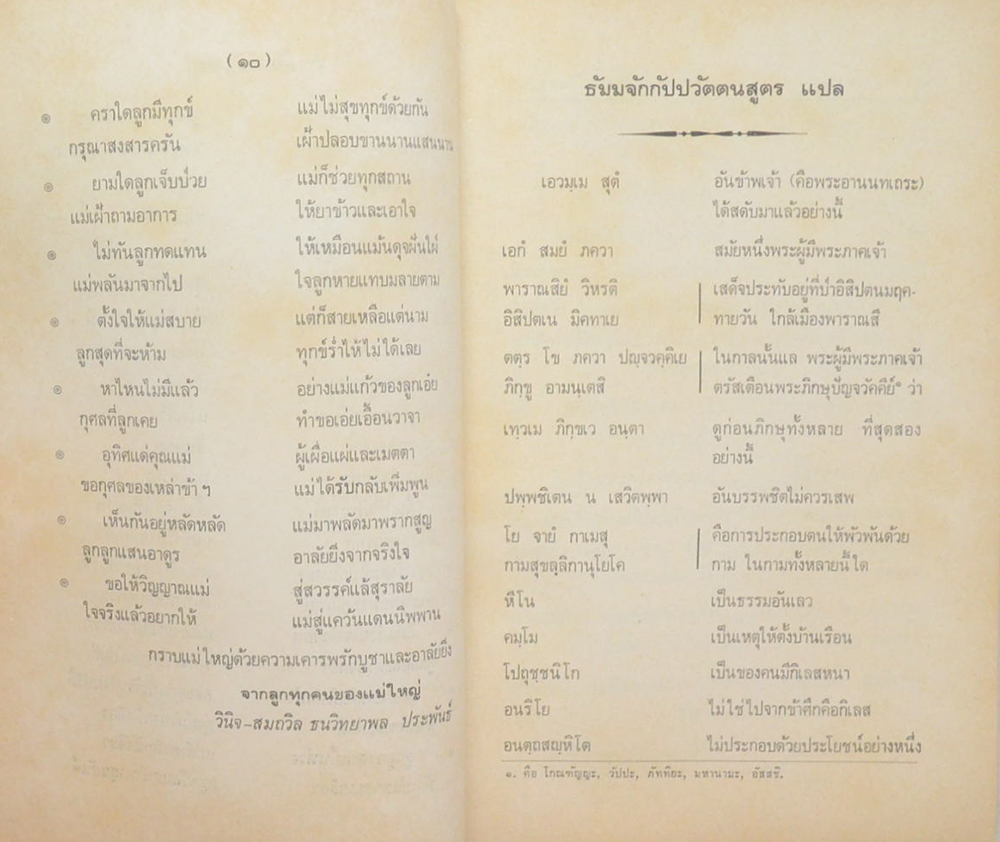 (๑๐)
๏ คราใดลูกมีทุกข์ แม่ไม่สุขทุกข์ด้วยกัน
กรุณาสงสารครัน เฝ้าปลอบขานนานแสนนาน
๏ ยามใดลูกเจ็บป่วย แม่ก็ช่วยทุกสถาน
แม่เฝ้าถามอาการ ให้ยาข้าวและเอาใจ
๏ ไม่ทันลูกทดแทน ให้เหมือนแม้นดุจฝันใฝ่
แม่พลันมาจากไป ใจลูกหายแทบมลายตาม
๏ ตั้งใจให้แม่สบาย แต่ก็สายเหลือแต่นาม
ลูกสุดที่จะห้าม ทุกข์ร่ำไห้ไม่ได้เลย
๏ หาไหนไม่มีแล้ว อย่างแม่แก้วของลูกเอ๋ย
กุศลที่ลูกเคย ทำขอเอ่ยเอื้อนวาจา
๏ อุทิศแด่คุณแม่ ผู้เผื่อแผ่และเมตตา
ขอกุศลของเหล่าข้า ฯ แม่ได้รับกลับเพิ่มพูน
๏ เห็นกันอยู่หลัดหลัด แม่มาพลัดมาพรากสูญ
ลูกลูกแสนอาดูร อาลัยยิ่งจากจริงใจ
๏ ขอให้วิญญาณแม่ สู่สวรรค์แล้สุราลัย
ใจจริงแล้วอยากให้ แม่สู่แคว้นแดนนิพพาน
กราบแม่ใหญ่ด้วยความเคารพรักบูชาและอาลัยยิ่ง
จากลูกทุกคนของแม่ใหญ่
วินิจ-สมถวิล ธนวิทยาพล ประพันธ์
ธัมมจักกัปปวัตตนสูตร แปล
เอวมฺเม สุตํ อันข้าพเจ้า (คือพระอานนทเถระ)
ได้สดับมาแล้วอย่างนี้
เอกํ สมยํ ภควา สมัยหนึ่งพระผู้มีพระภาคเจ้า
พาราณสิยํ วิหรติ เสด็จประทับอยู่ที่ป่าอิสิปตนมฤค-
อิสิปตเน มิคทาเย ทายวัน ใกล้เมืองพาราณสี
ตตฺร โข ภควา ปญฺจวคฺคิเย ในกาลนั้นแล พระผู้มีพระภาคเจ้า
ภิกฺขู อามนฺเตสิ ตรัสเตือนพระภิกษุปัญจวัคคีย์๑ ว่า
เทฺวเม ภิกฺขเว อนฺตา ดูก่อนภิกษุทั้งหลาย ที่สุดสอง
อย่างนี้
ปพฺพชิเตน น เสวิตพฺพา อันบรรพชิตไม่ควรเสพ
โย จายํ กาเมสุ คือการประกอบตนให้พัวพันด้วย
กามสุขลฺลิกานุโยโค กาม ในกามทั้งหลายนี้ใด
หีโน เป็นธรรมอันเลว
คมฺโม เป็นเหตุให้ตั้งบ้านเรือน
โปถุชฺชนิโก เป็นของคนมีกิเลสหนา
อนริโย ไม่ใช่ไปจากข้าศึกคือกิเลส
อนตฺถสญฺหิโต ไม่ประกอบด้วยประโยชน์อย่างหนึ่ง
๑. คือ โกณฑัญญะ, วัปปะ, ภัททิยะ, มหานามะ, อัสสชิ.